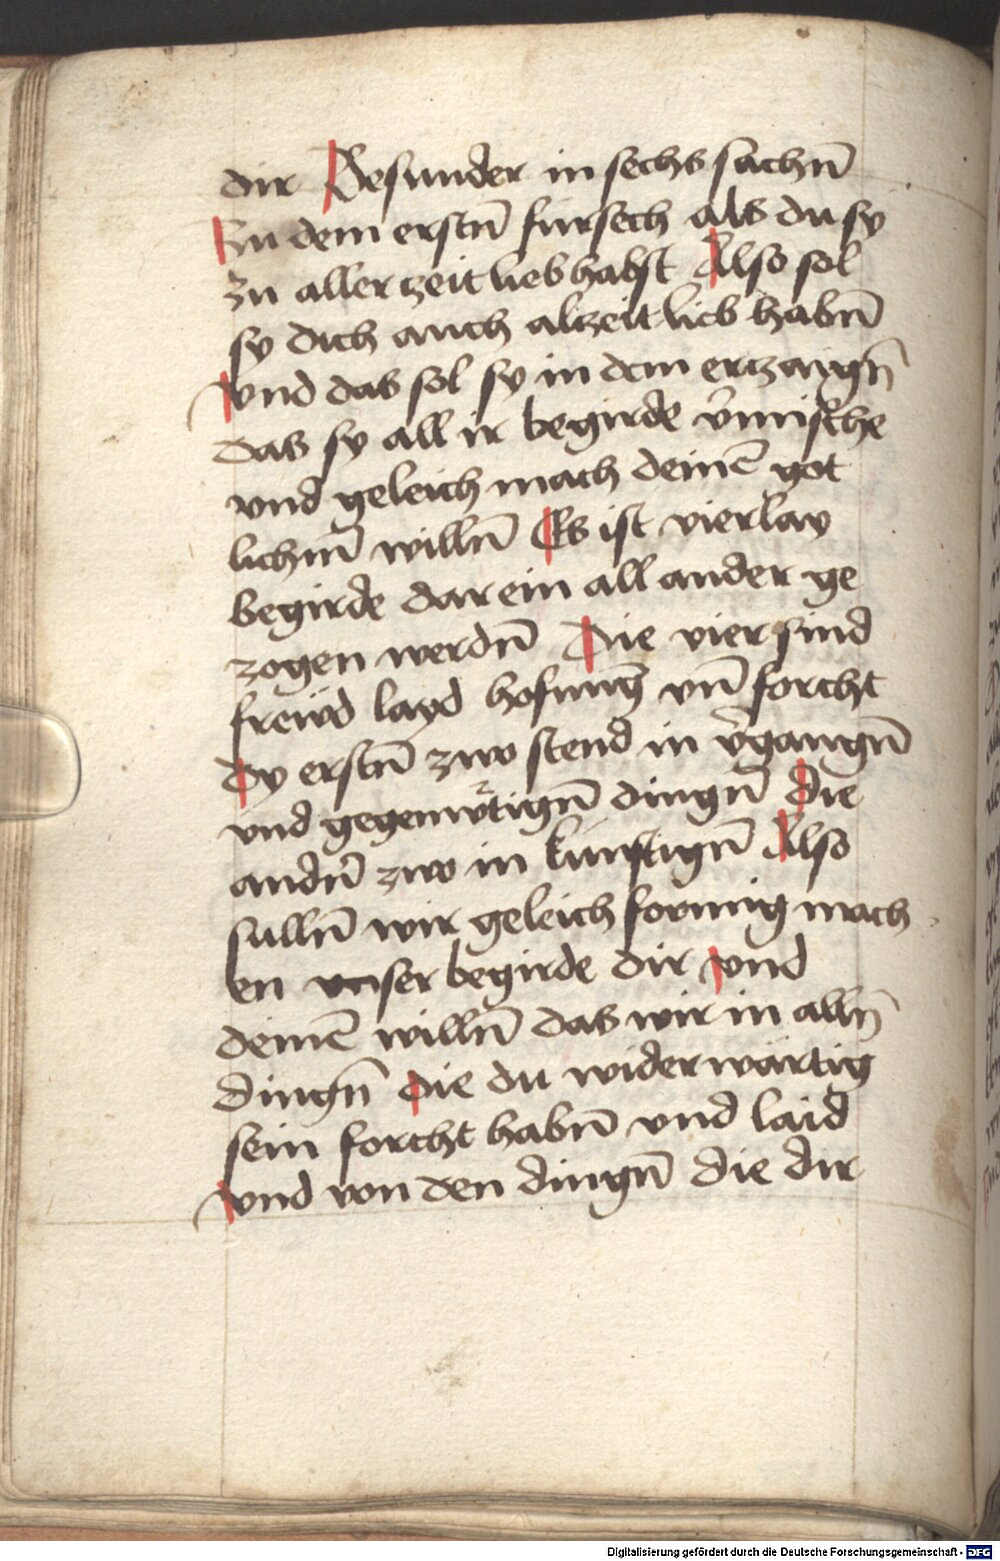 dir Besunder in sechs sachn̄
Zu dem erstn̄ fürsech als du sy
zu aller zeit lieb habst Also sol
sy dich auch alzeit lieb habn̄
vnd das sol sy in dem ertzaign̄
das sy all ir begirde v̄mische
vnd geleich mach deinē got
lichm̄ willn̄ Es ist vierlay
begirde dar ein all ander ge
zogen werdn̄ Die vier sind
freüd layd hofnung vn̄ forcht
dy erstn̄ zwo stend in v̄gangn̄
vnd gegenwꝛtign̄ dingn̄ die
andn̄ zwo in künftign̄ Also
sulln̄ wir geleich formig mach
en vnser begirde dir vnd
deinē willn̄ das wir in alln̄
dingn̄ die du wider wärtig
sein forcht habn̄ vnd laid
vnd von den dingn̄ die dir
Digitalisierung gefördert durch die Deutsche Forschungsgemeinschaft - DFG